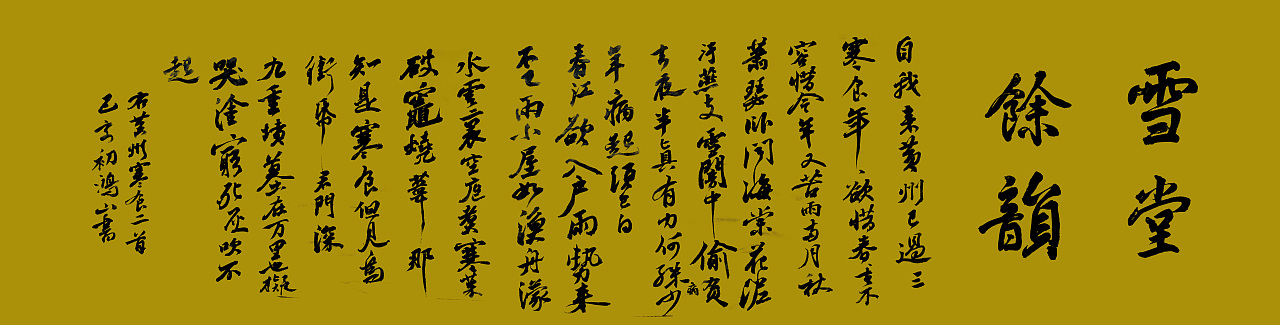 雪堂
餘韻
自我来黄州已過三
寒食年々欲惜春々去不
容惜今年又苦雨兩月秋
蕭瑟卧聞海棠花泥
汙燕支雪闇中偷負
去夜半真有力何殊病少
年病起頭已白
春江欲入户雨勢来
不已雨小屋如漁舟濛
水雲裏空庖煮寒菜
破竈燒葦那
知是寒食但見烏
銜帋君門深
九重墳墓在万里也擬
哭塗窮死灰吹不
起
右黄州寒食二首
己亥初鴻山書